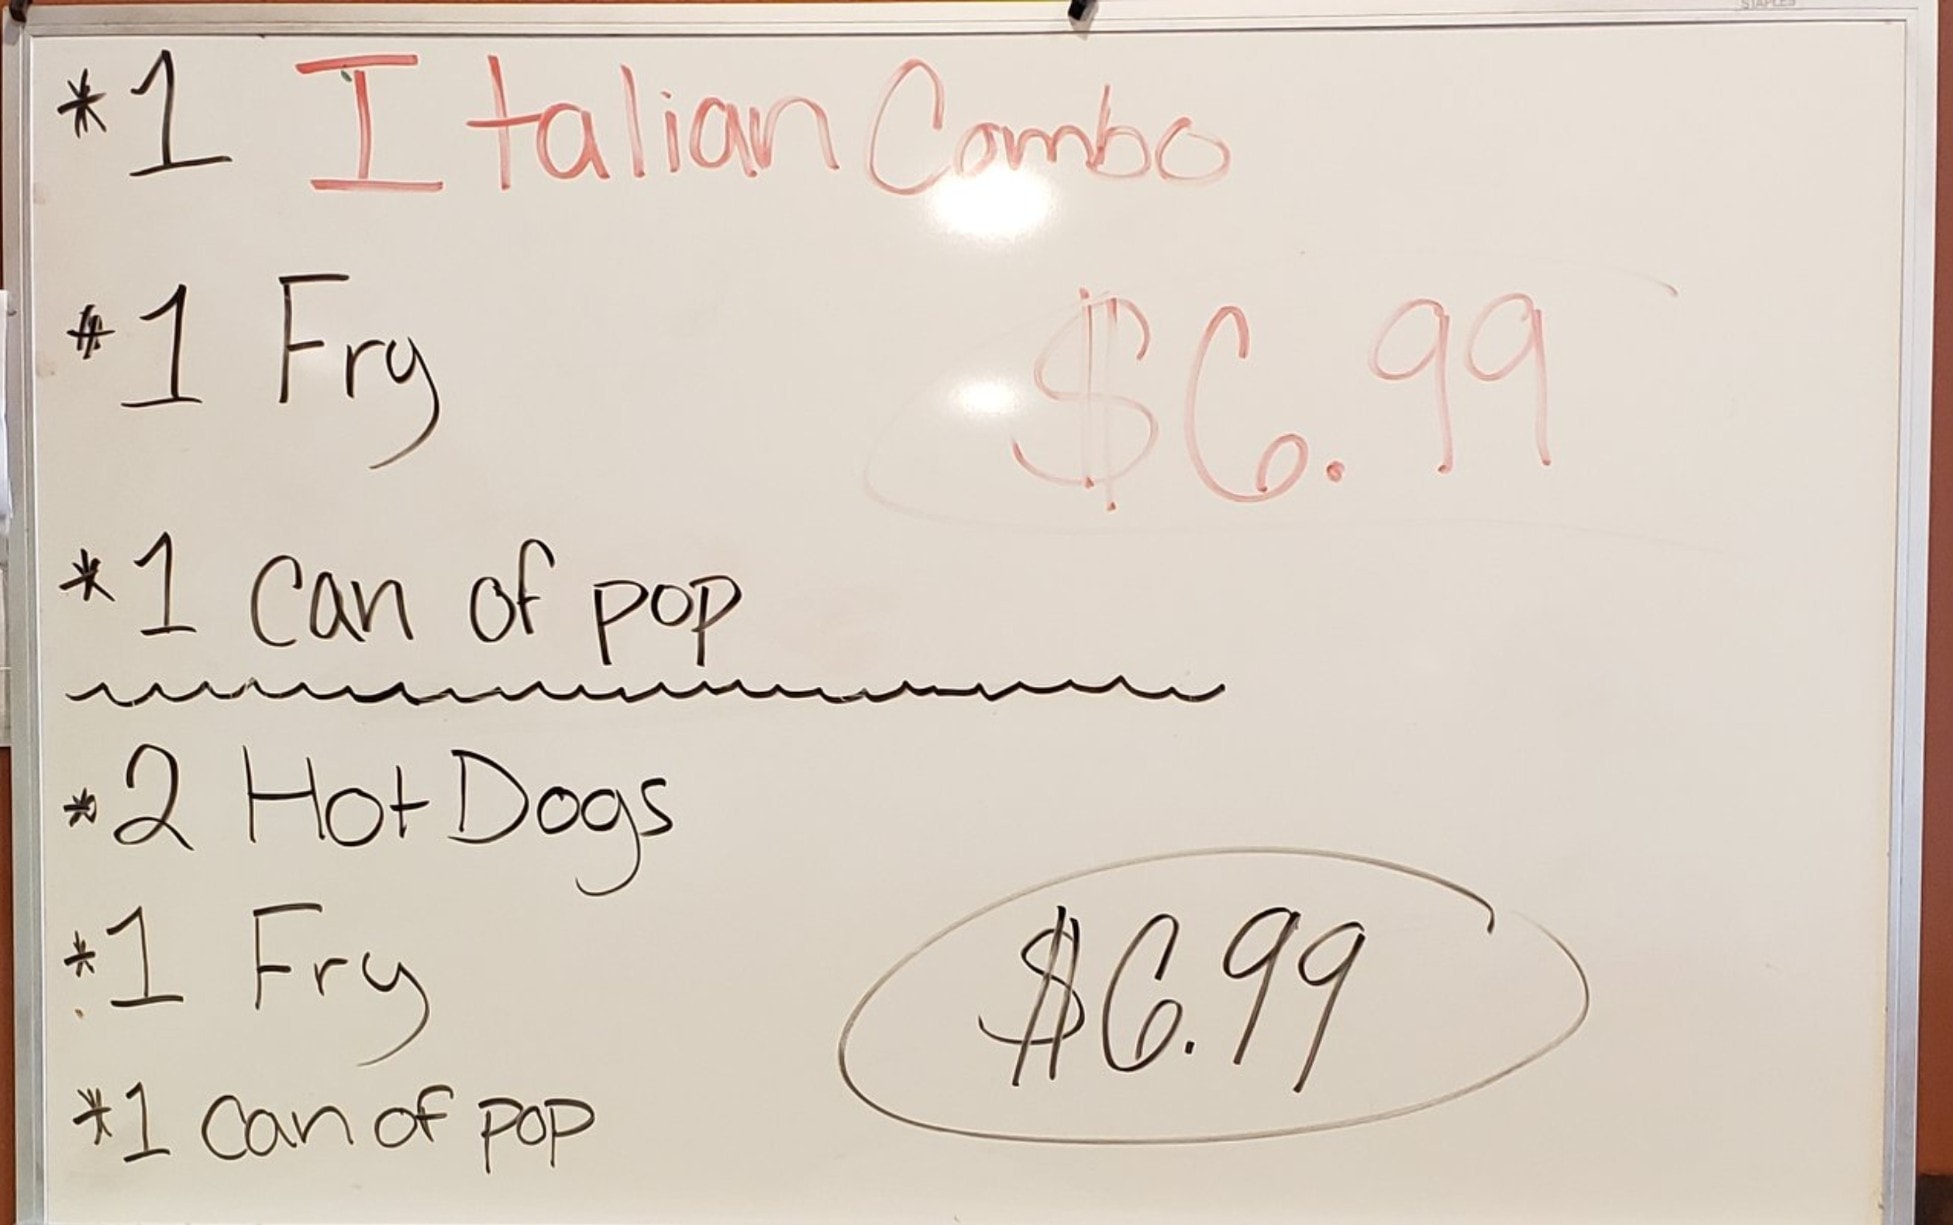 STAPLES
*1 Italian Combo
*1 Fry
$6.99
*1 can of pop
*2 Hot Dogs
*1 Fry
$6.99
*1 can of pop